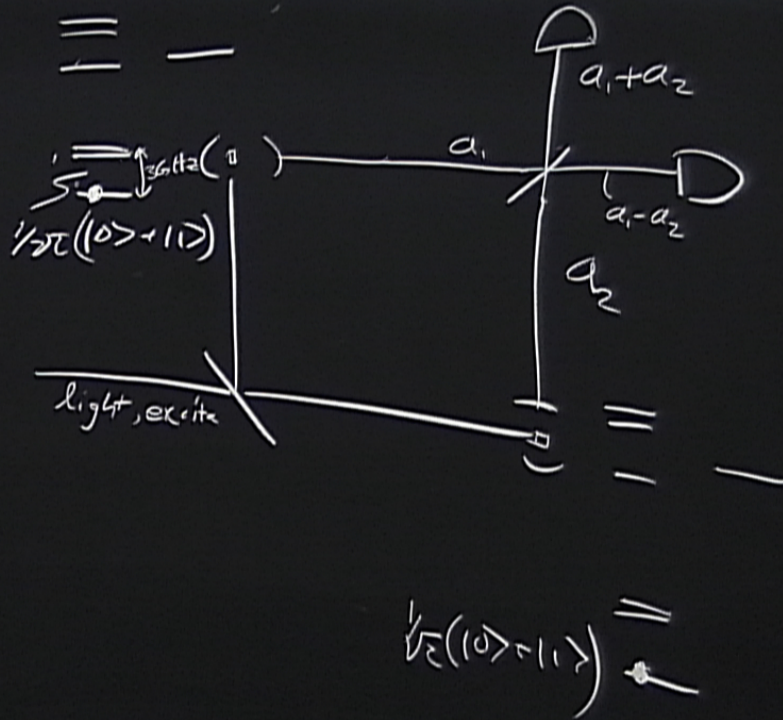 a₁+a₂
1
3GHz
a₁
a₁-a₂
1/√2(|0>+|1>)
a₂
light, excite
1/√2(|0>+|1>)